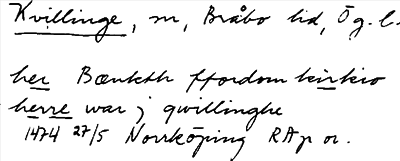 Kvillinge, sn, Bråbo hd, Ög. l.
her Bænkth ffordom kirkio
herre war j qwillinghe
1474 27/5 Norrköping RAp or.